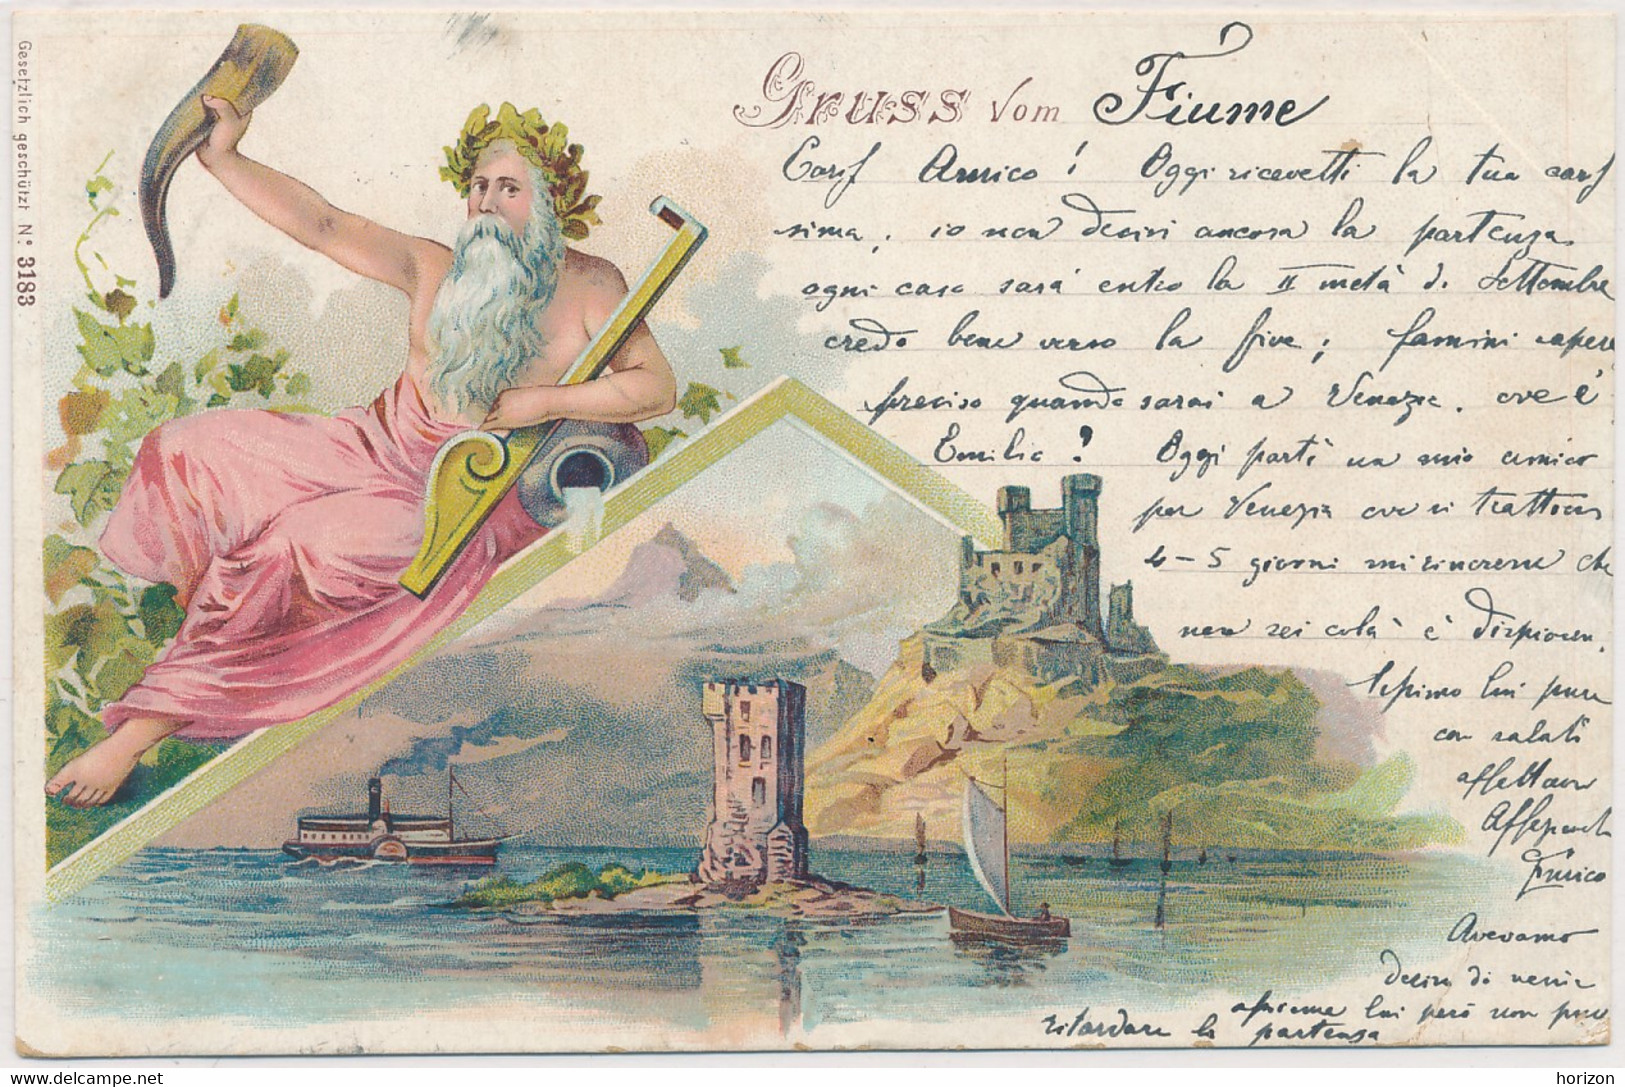 Gesetzlich geschützt N.º 3183
Gruss vom Fiume
Carif Amico! Oggi ricevetti la tua carif
sima, io non decisi ancora la partenza
ogni caso sarà entro la II metà di Settembre
credo bene verso la fine; fammi sapere
preciso quando sarai a Venezia. ove è
Emilia? Oggi partì un mio amico
per Venezia ove si tratterrà
4-5 giorni mi rincresce che
non sei colà è
lui pure
con saluti
Enrico
Avevamo
di venir
assieme lui però non può
ritardare la partenza
delcampe.net
horizon